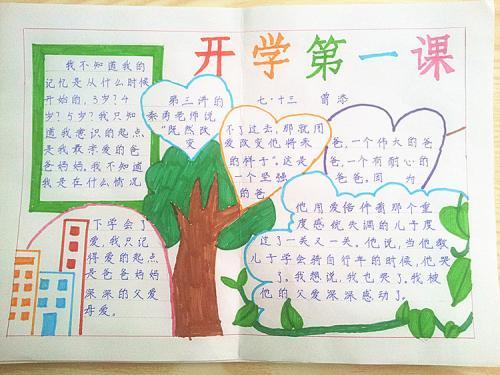 开学第一课
七·十三 曾添
我不知道我的
记忆是从什么时候
开始的，3岁？4
岁？5岁？我只知
道我意识的起点，
是我最亲爱的爸
爸妈妈。我不知道
我是在什么情况
下学会了
爱，我只记
得爱的起点
是爸爸妈妈
深深的父爱
母爱。
第三讲的
秦勇老师说
“既然改
变
不了过去，那就用
爱改变他将来
的样子”。这是
一个坚强
的爸
爸，一个伟大的爸
爸，一个有耐心的
爸爸，因为
他用爱陪伴着那个重
度感统失调的儿子度
过了一关又一关。他说，当他教
儿子学会骑自行车的时候，他哭
了。我想说，我也哭了。我被
他的父爱深深感动了。